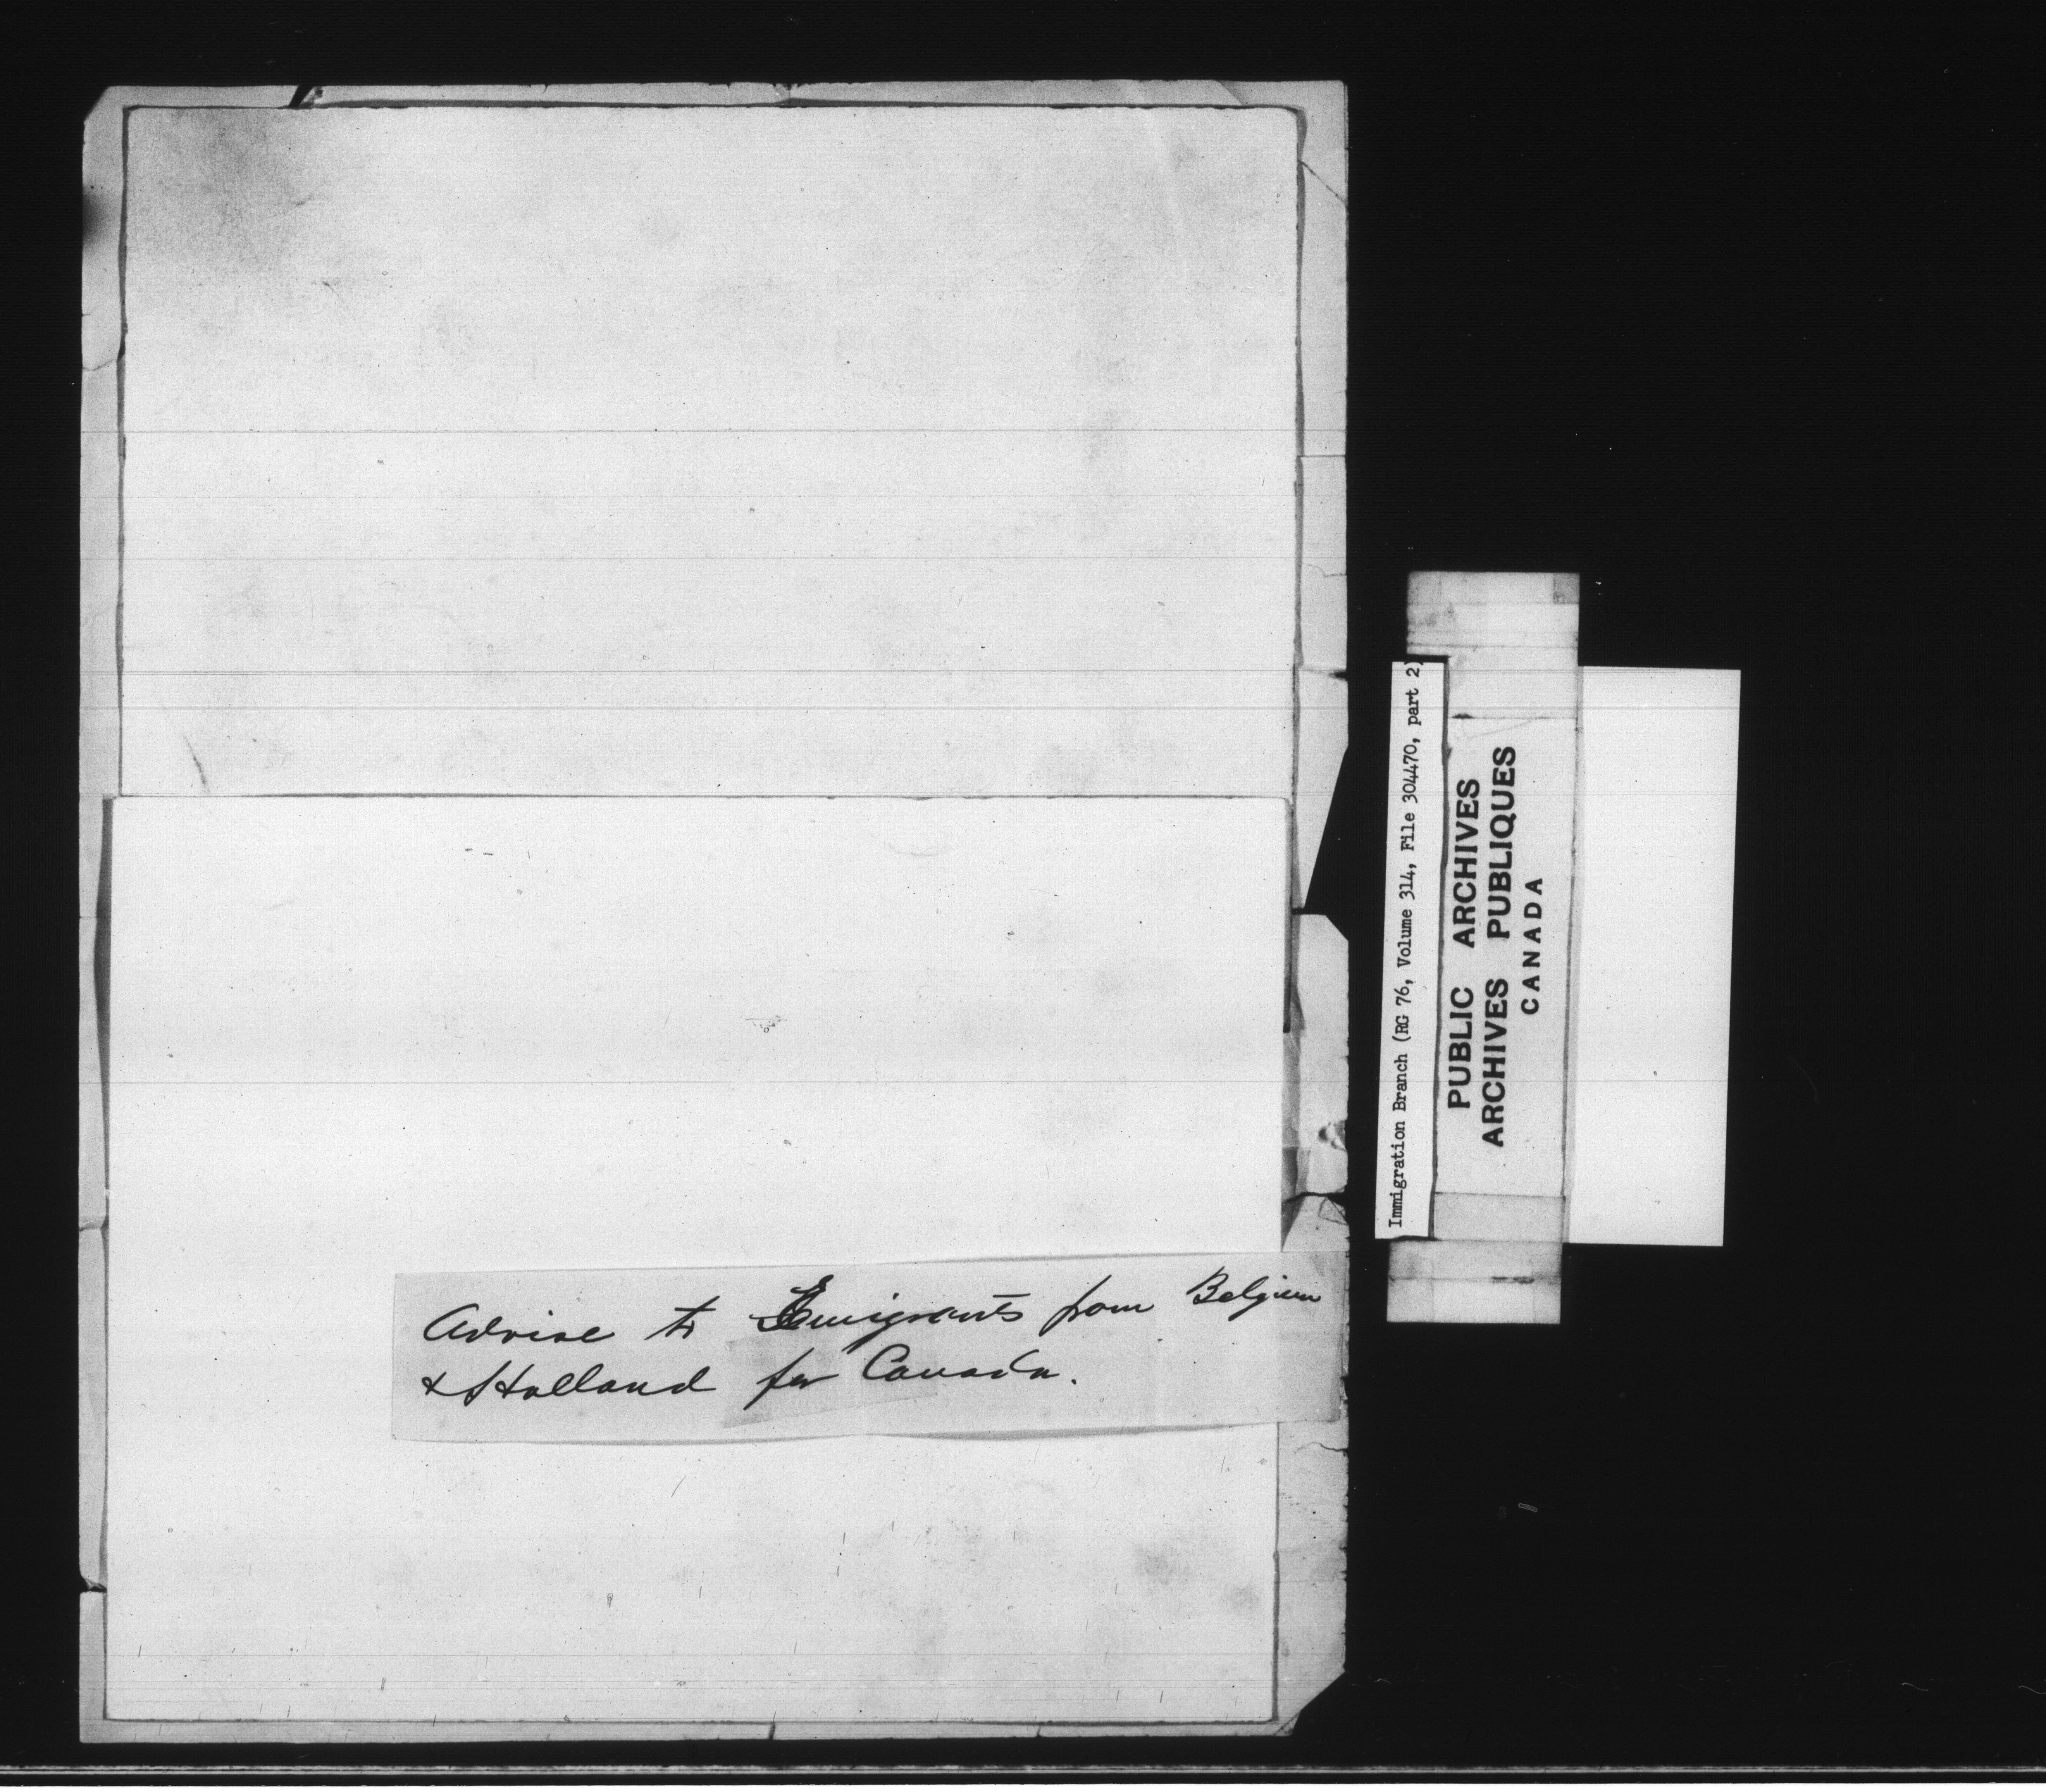 Advise to Emigrants from Belgium
& Holland for Canada.
Immigration Branch (RG 76, Volume 314, File 304470, part 2)
PUBLIC ARCHIVES
ARCHIVES PUBLIQUES
CANADA